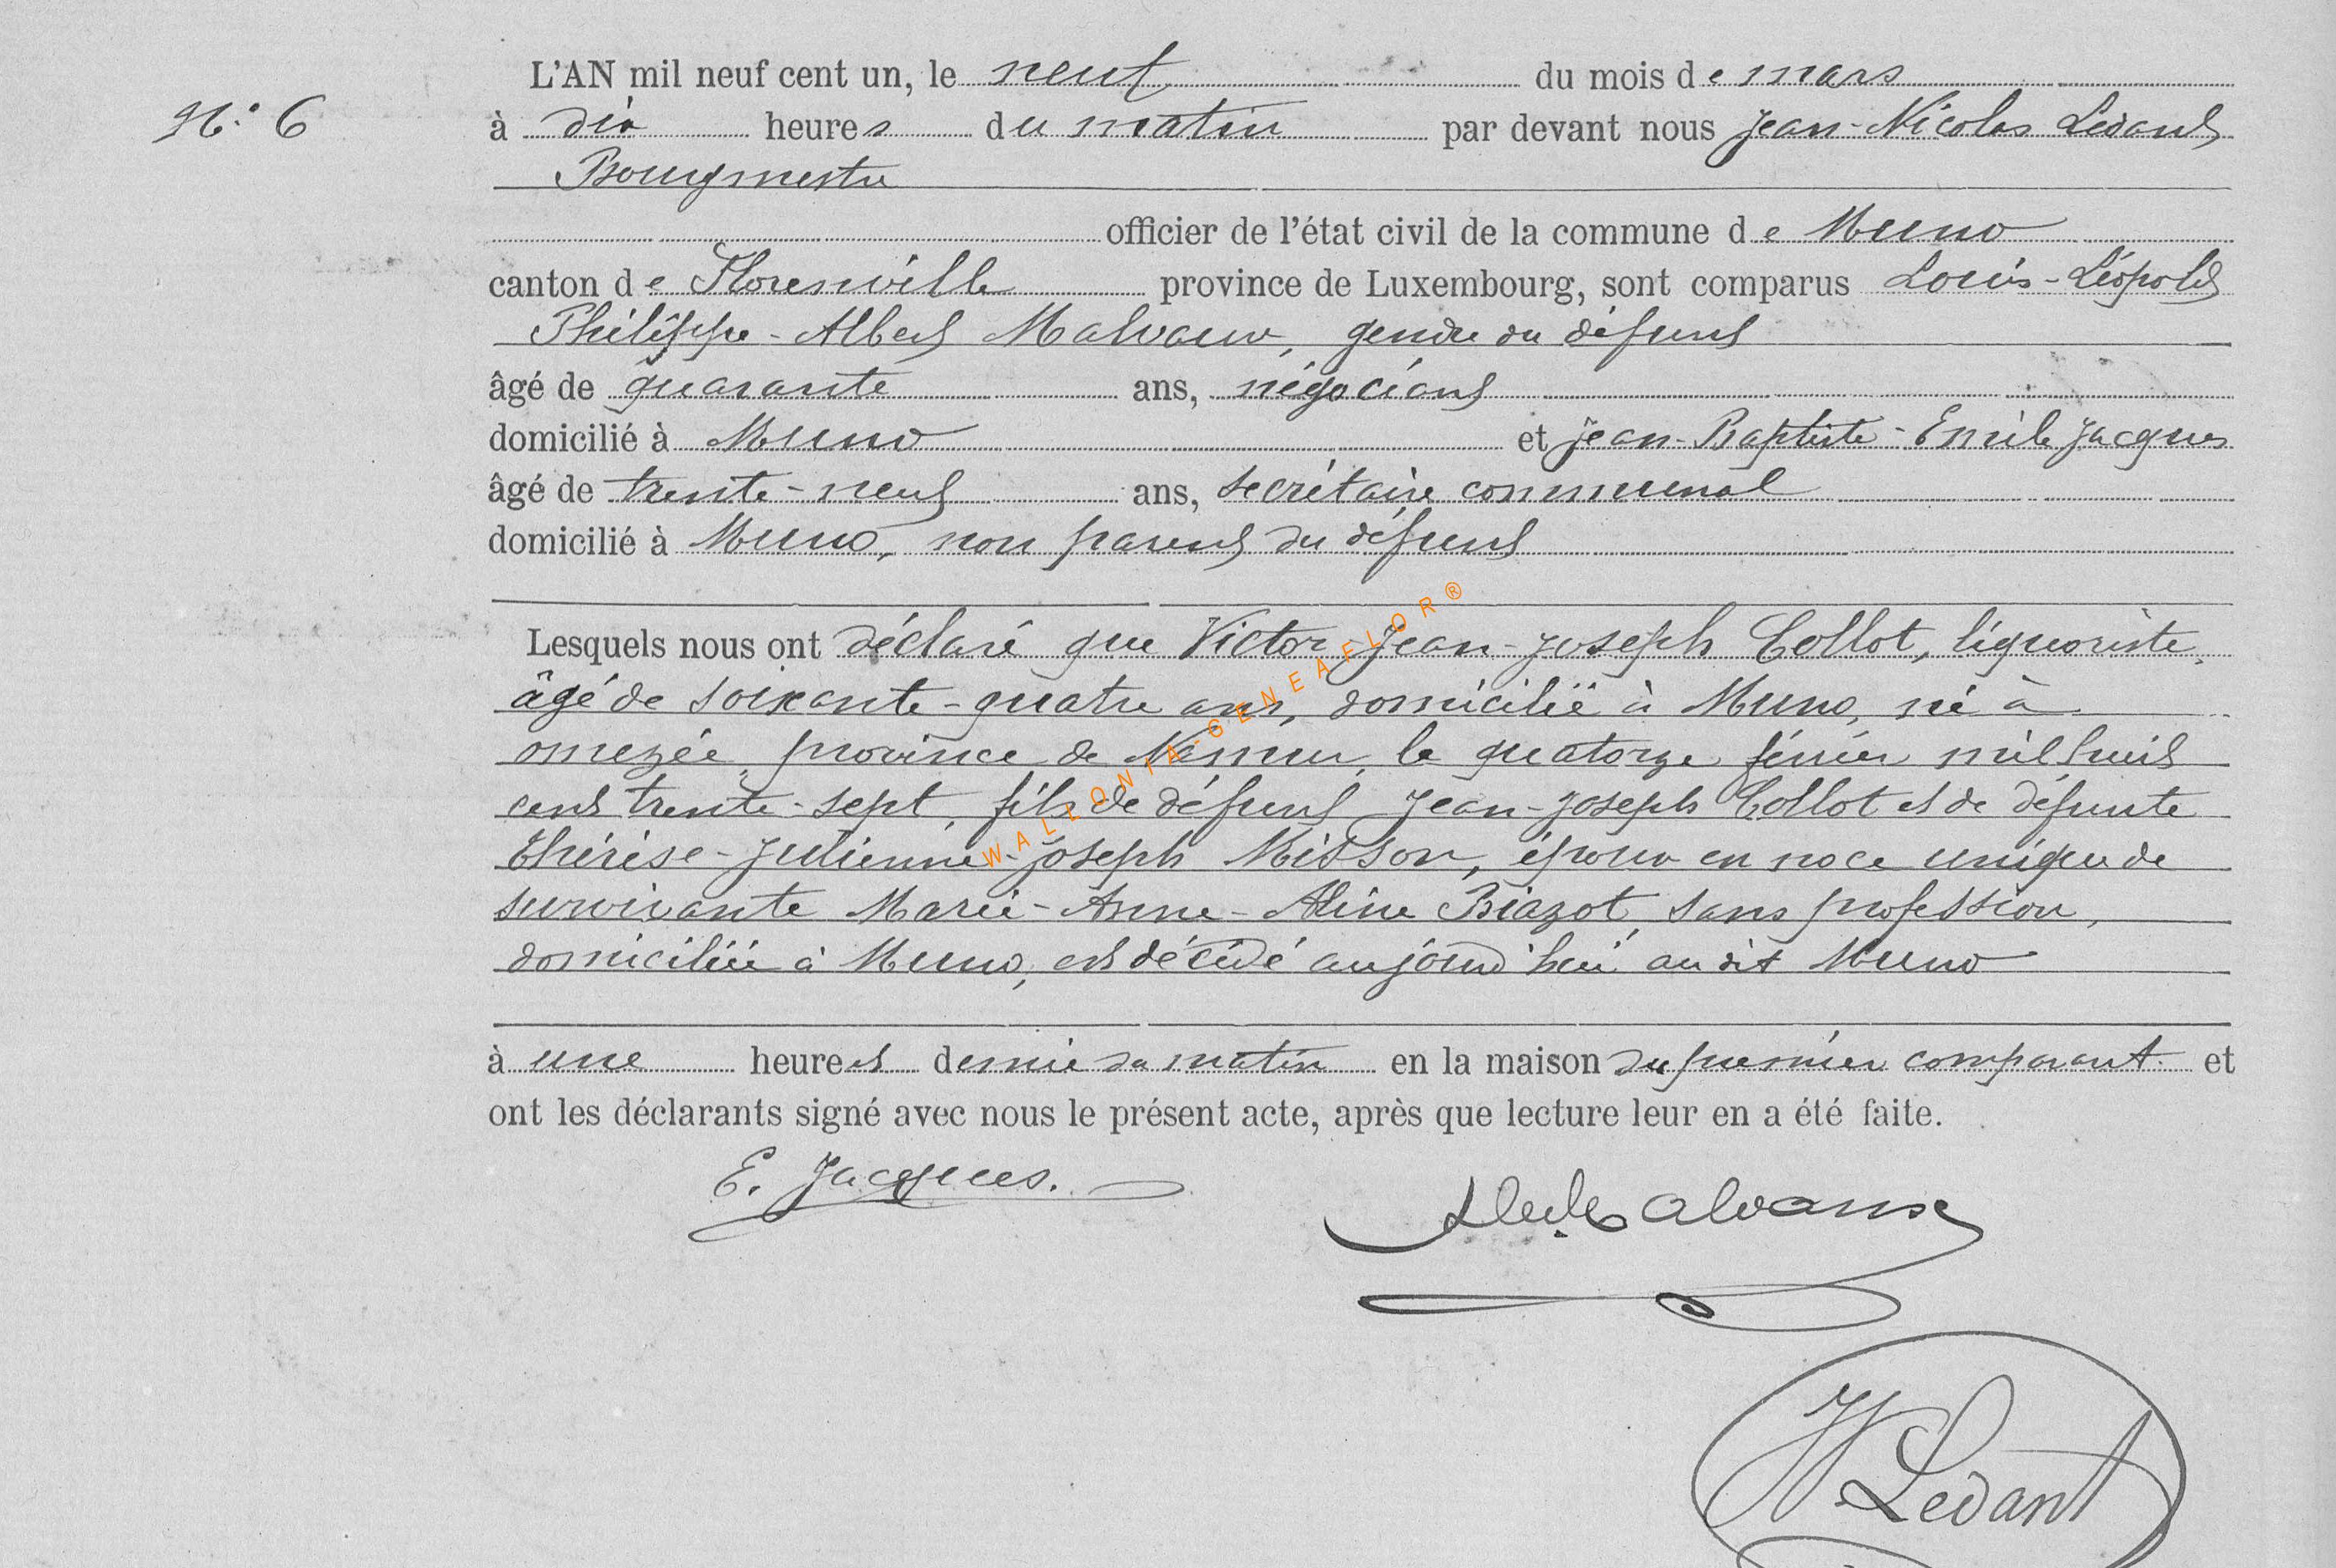 L'AN mil neuf cent un, le neuf du mois de mars
N° 6
à dix heures du matin par devant nous Jean-Nicolas Ledant
Bourgmestre
officier de l'état civil de la commune de Muno
canton de Florenville province de Luxembourg, sont comparus Louis-Léopold
Philippe-Albert Malvaux, gendre du défunt
âgé de quarante ans, négociant
domicilié à Muno et Jean-Baptiste-Emile Jacques
âgé de trente-neuf ans, secrétaire communal
domicilié à Muno, non parent du défunt
Lesquels nous ont déclaré que Victor-Jean-Joseph Collot, liquoriste,
âgé de soixante-quatre ans, domicilié à Muno, né à
omezée, province de Namur, le quatorze février mil huit
cent trente-sept, fils de défunt Jean-Joseph Collot et de défunte
Thérèse-Julienne-Joseph Misson, époux en noce unique de
survivante Marie-Anne-Aline Biazot, sans profession,
domiciliée à Muno, est décédé aujourd'hui au dit Muno
à une heure et demie du matin en la maison du premier comparant et
ont les déclarants signé avec nous le présent acte, après que lecture leur en a été faite.
E. Jacques.
Malvaux
Ledant
WALLONIA-GENEAFLOR®